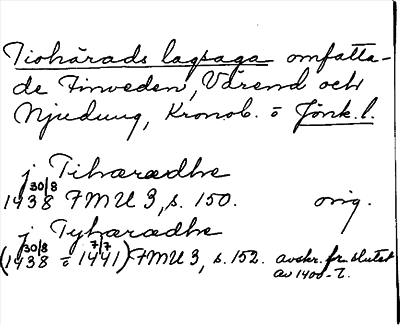 Tiohärads lagsaga omfatta-
de Finveden, Värend och
Njudung, Kronob. o Jönk. l.
j Tiheræedhe
1438 30/8 FMU 3, s. 150. orig.
j Tyheræedhe
(1438 30/8 o 1441 7/7) FMU 3, s. 152. avskr. fr. slutet
av 1400-t.